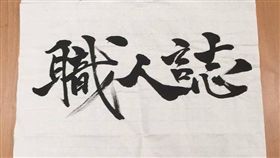 職人誌